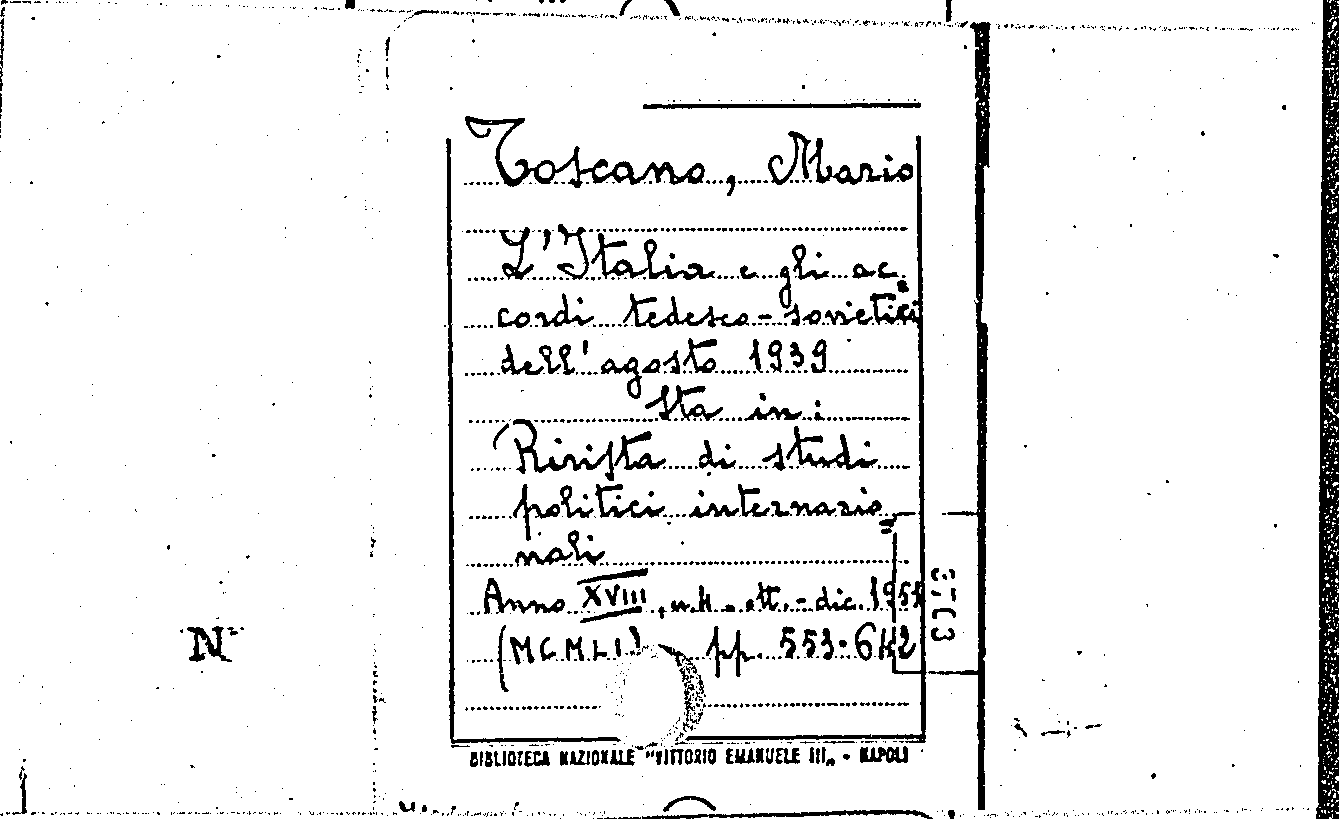 Toscano, Mario
L'Italia e gli ac=
cordi tedesco-sovietici
dell'agosto 1939
Sta in:
Rivista di studi
politici internazio=
nali
Anno XVIII, n.4. ott.-dic. 1951
(MCMLI) pp. 553-642
N°
BIBLIOTECA NAZIONALE "VITTORIO EMANUELE III„ - NAPOLI